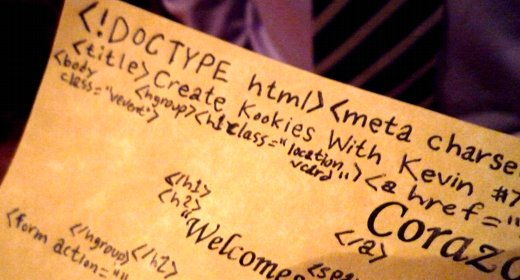 <!DOCTYPE html> <meta charse
<title> Create Kookies With Kevin #7
<body <hgroup> <h1 class="location <a href="
class="vevent"> vcard">
Coraz
</h1> </a>
<h2>
"Welcomes <span
</hgroup> </h2>
<form action=""